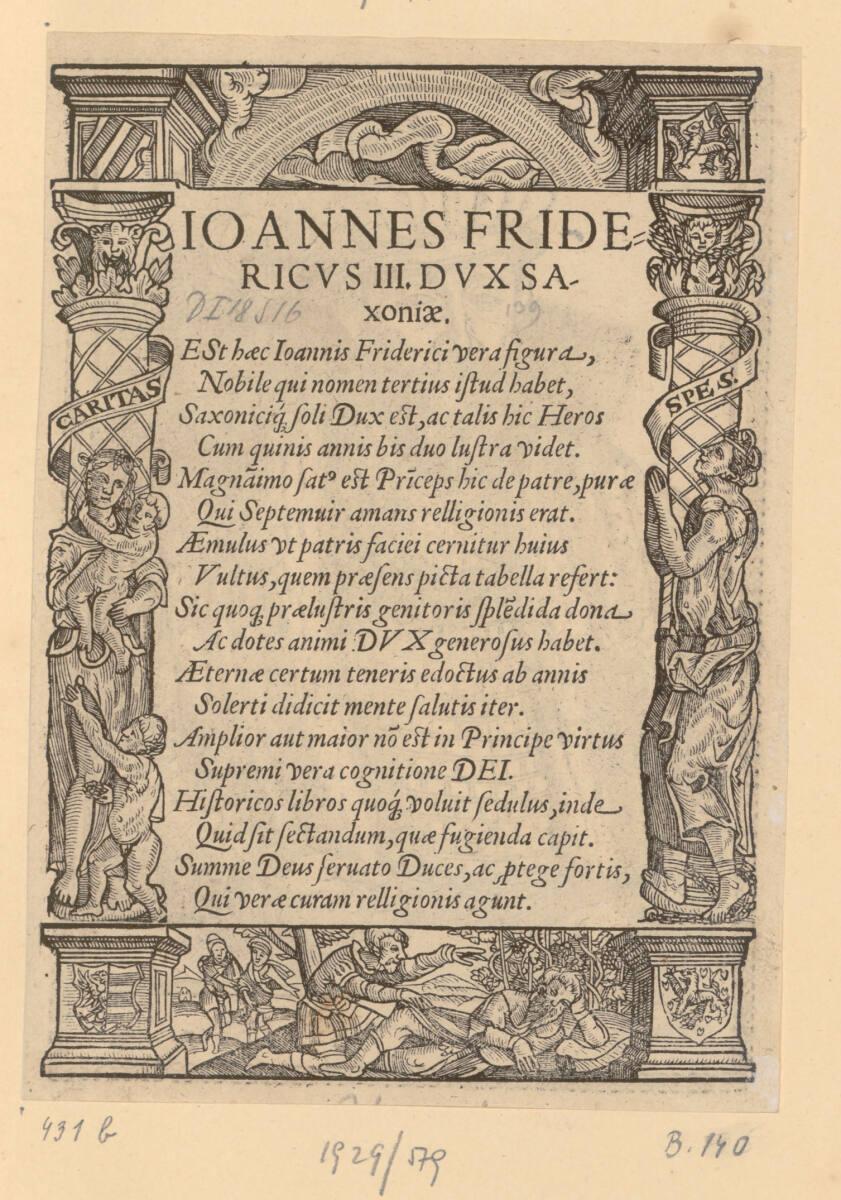 IOANNES FRIDE-
RICVS III. DVX SA-
xoniæ.
DI 18516
139
CARITAS
SPES.
ESt hæc Ioannis Friderici vera figura,
Nobile qui nomen tertius iſtud habet,
Saxoniciq́; ſoli Dux eſt, ac talis hic Heros
Cum quinis annis bis duo luſtra videt.
Magnãimo ſatꝰ eſt Prĩceps hic de patre, puræ
Qui Septemuir amans relligionis erat.
Æmulus vt patris faciei cernitur huius
Vultus, quem præſens picta tabella refert:
Sic quoq; præluſtris genitoris ſplẽdida dona
Ac dotes animi DVX generoſus habet.
Æternæ certum teneris edoctus ab annis
Solerti didicit mente ſalutis iter.
Amplior aut maior nõ eſt in Principe virtus
Supremi vera cognitione DEI.
Hiſtoricos libros quoq́; voluit ſedulus, inde
Quid ſit ſectandum, quæ fugienda capit.
Summe Deus ſeruato Duces, ac ꝓtege fortis,
Qui veræ curam relligionis agunt.
431 b
1929/579
B. 140